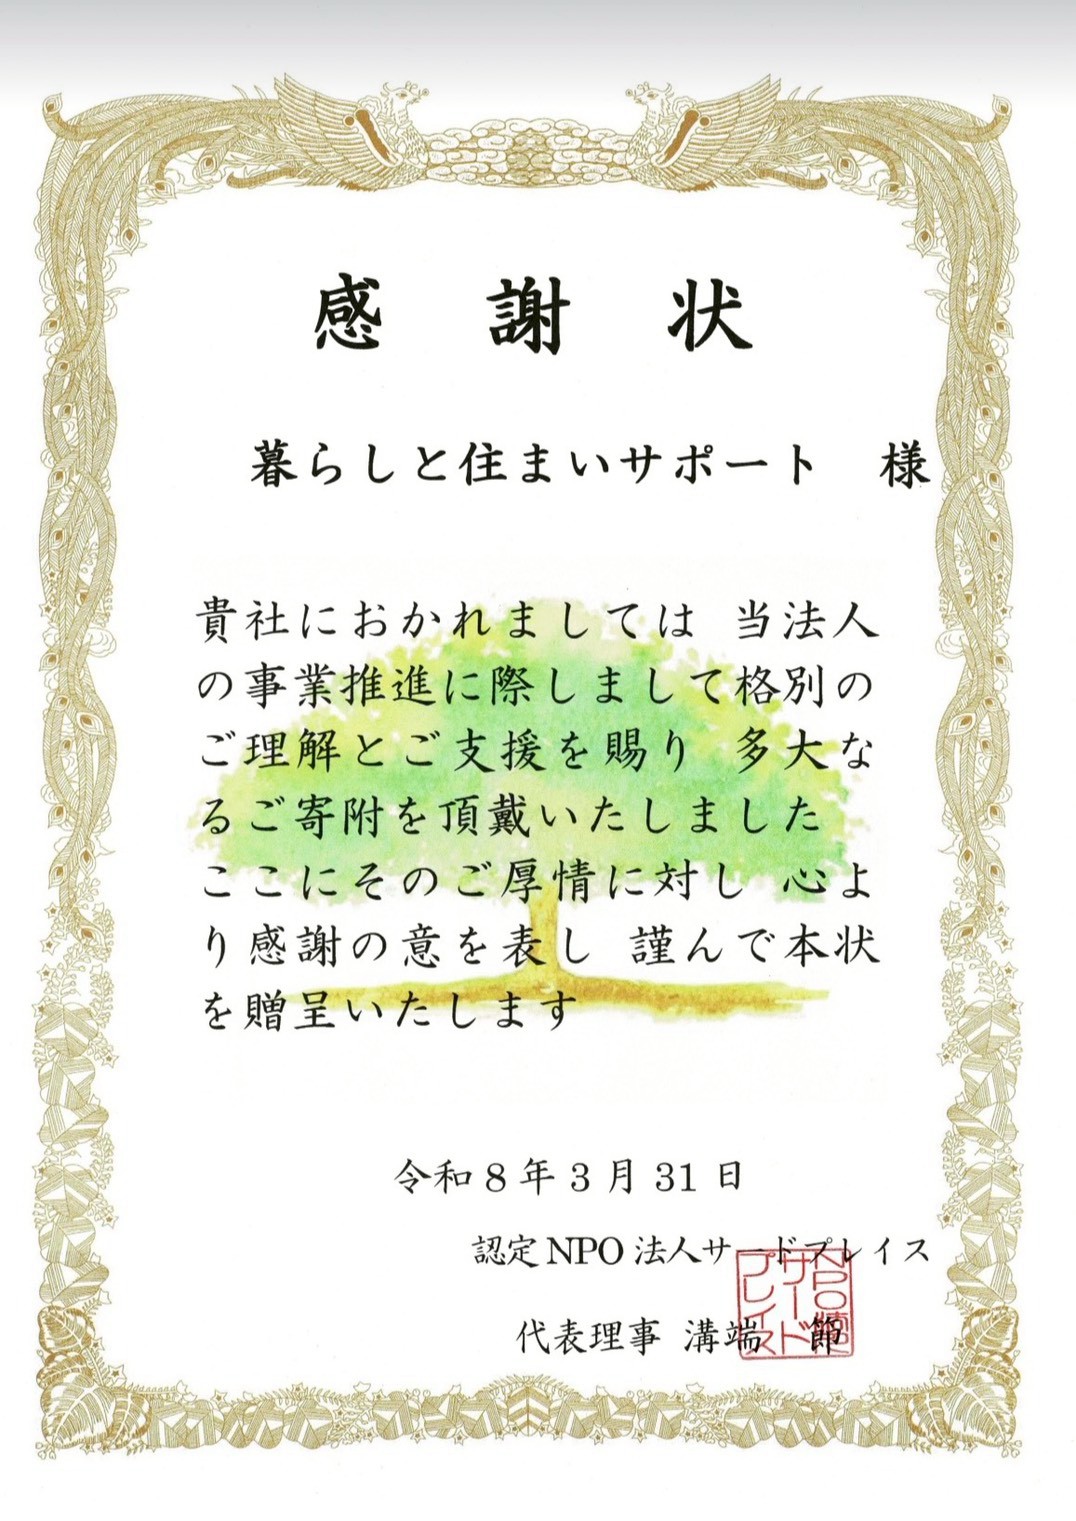 感謝状
暮らしと住まいサポート 様
貴社におかれましては 当法人
の事業推進に際しまして格別の
ご理解とご支援を賜り 多大な
るご寄附を頂戴いたしました
ここにそのご厚情に対し 心よ
り感謝の意を表し 謹んで本状
を贈呈いたします
令和8年3月31日
認定NPO法人サードプレイス
代表理事 溝端 節
NPO法人
サード
プレイス